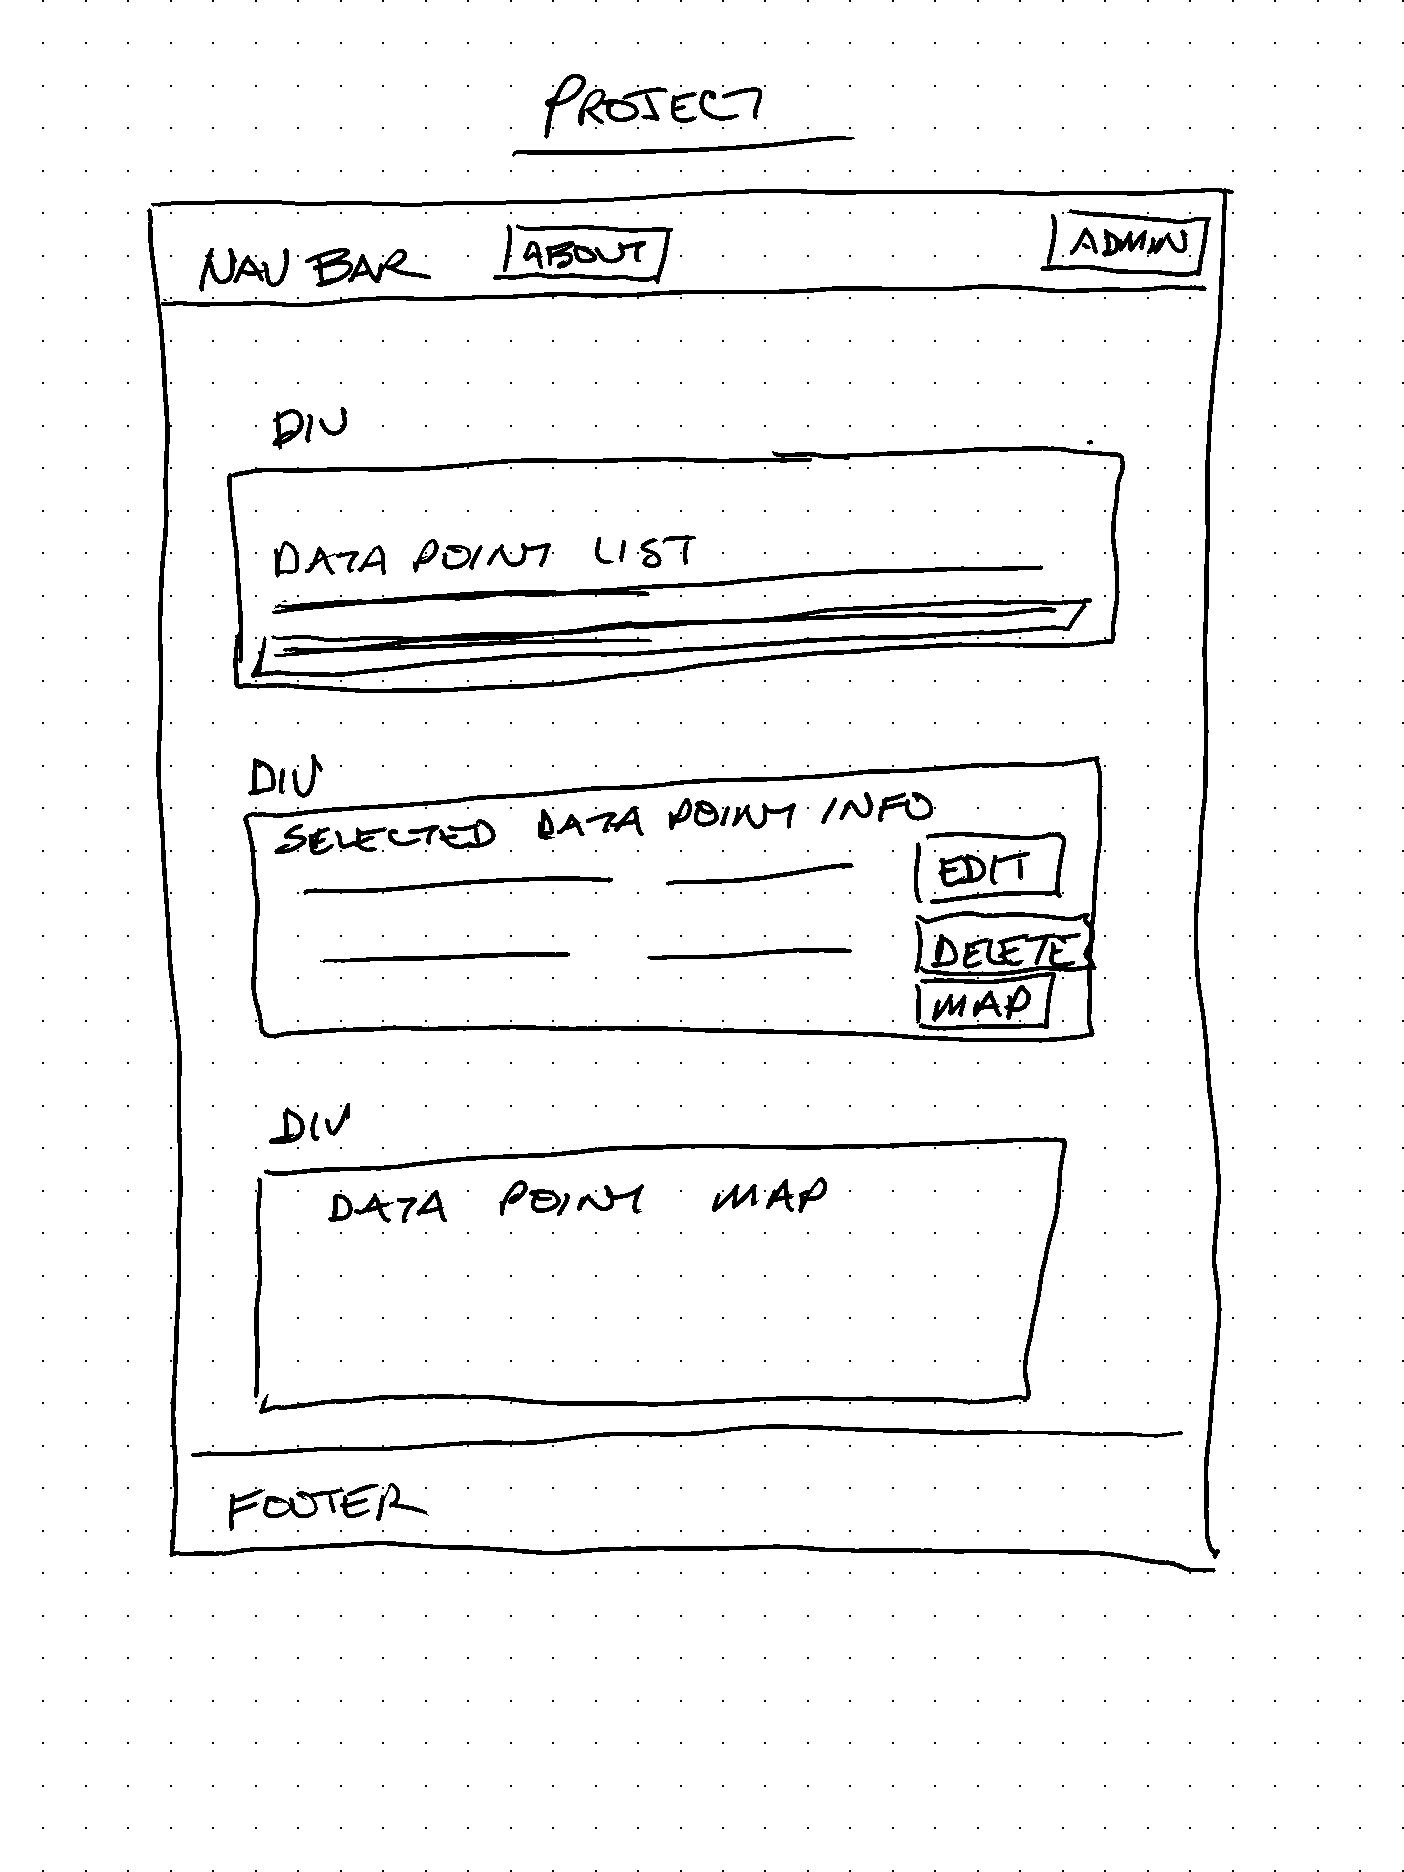 PROJECT
NAV BAR ABOUT ADMIN
DIV
DATA POINT LIST
DIV
SELECTED DATA POINT INFO
EDIT
DELETE
MAP
DIV
DATA POINT MAP
FOOTER